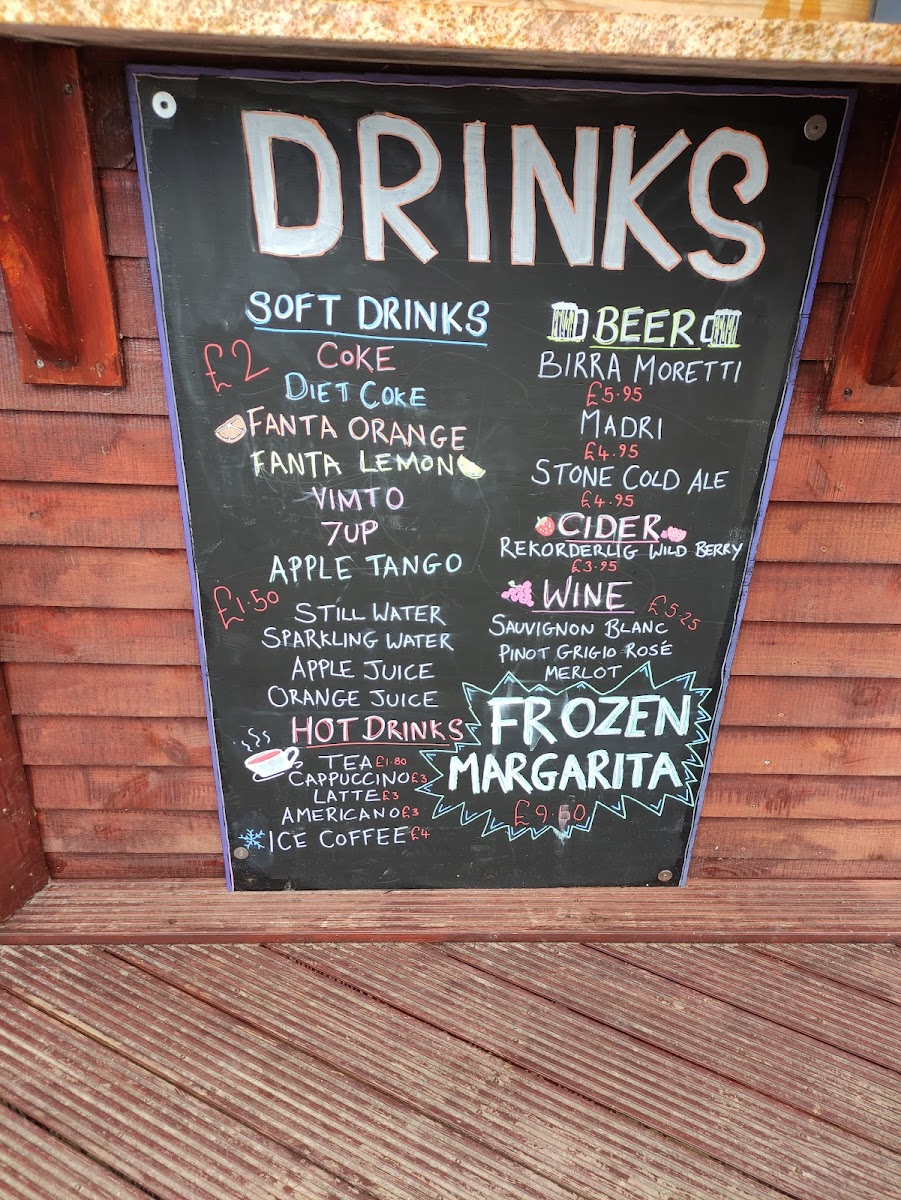 DRINKS
SOFT DRINKS
£2
COKE
DIET COKE
FANTA ORANGE
FANTA LEMON
VIMTO
7UP
APPLE TANGO
£1.50
STILL WATER
SPARKLING WATER
APPLE JUICE
ORANGE JUICE
HOT DRINKS
TEA £1.80
CAPPUCCINO £3
LATTE £3
AMERICANO £3
ICE COFFEE £4
BEER
BIRRA MORETTI
£5.95
MADRI
£4.95
STONE COLD ALE
£4.95
CIDER
REKORDERLIG WILD BERRY
£3.95
WINE
£5.25
SAUVIGNON BLANC
PINOT GRIGIO ROSÉ
MERLOT
FROZEN
MARGARITA
£9.50